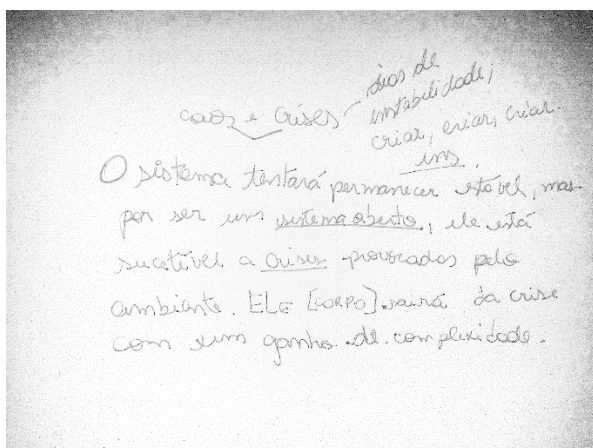 caos e crises – dias de
instabilidade;
criar, criar, criar.
O sistema tentará permanecer estável, mas
por ser um sistema aberto, ele está
sucetível a crises provocadas pelo
ambiente. ELE [CORPO] sairá da crise
com um ganho de complexidade.